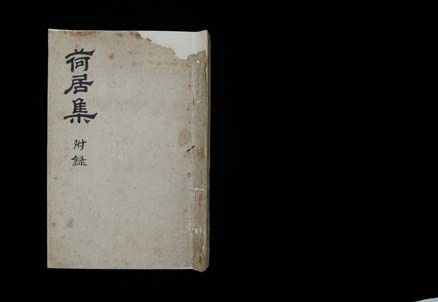 荷居集
附録